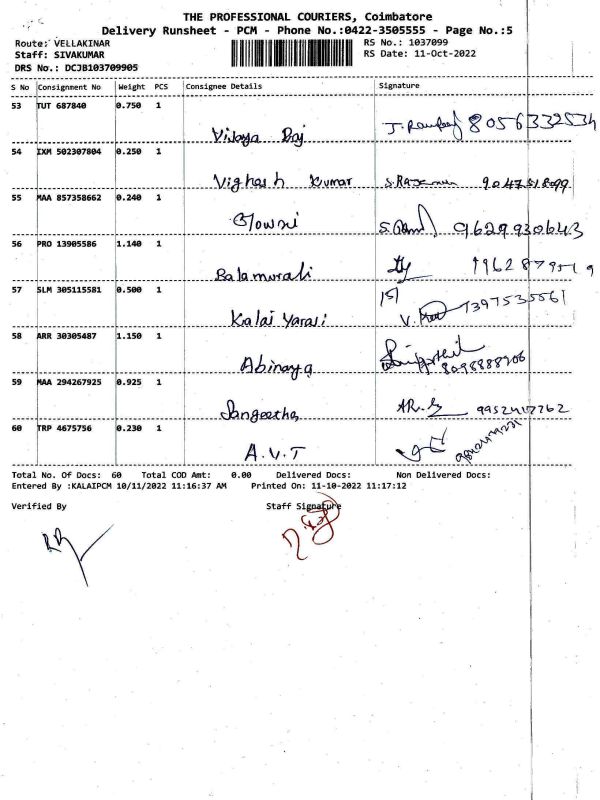 THE PROFESSIONAL COURIERS, Coimbatore
Delivery Runsheet - PCM - Phone No.:0422-3505555 - Page No.:5
Route: VELLAKINAR RS No.: 1037099
Staff: SIVAKUMAR RS Date: 11-Oct-2022
DRS No.: DCJB103709905
S No Consignment No Weight PCS Consignee Details Signature
53 TUT 687840 0.750 1
Vijaya Raj 8056332534
54 IXM 502307804 0.250 1
Vighesh Kumar
55 MAA 857358662 0.240 1
Gowri 9629930643
56 PRO 13905586 1.140 1
Balamurali
57 SLM 305115581 0.500 1
Kalai Yarasi 7397535561
58 ARR 30305487 1.150 1
Abinaya
59 MAA 294267925 0.925 1
Sangeetha 9952417762
60 TRP 4675756 0.230 1
A.V.T
Total No. Of Docs: 60 Total COD Amt: 0.00 Delivered Docs: Non Delivered Docs:
Entered By :KALAIPCM 10/11/2022 11:16:37 AM Printed On: 11-10-2022 11:17:12
Verified By Staff Signature